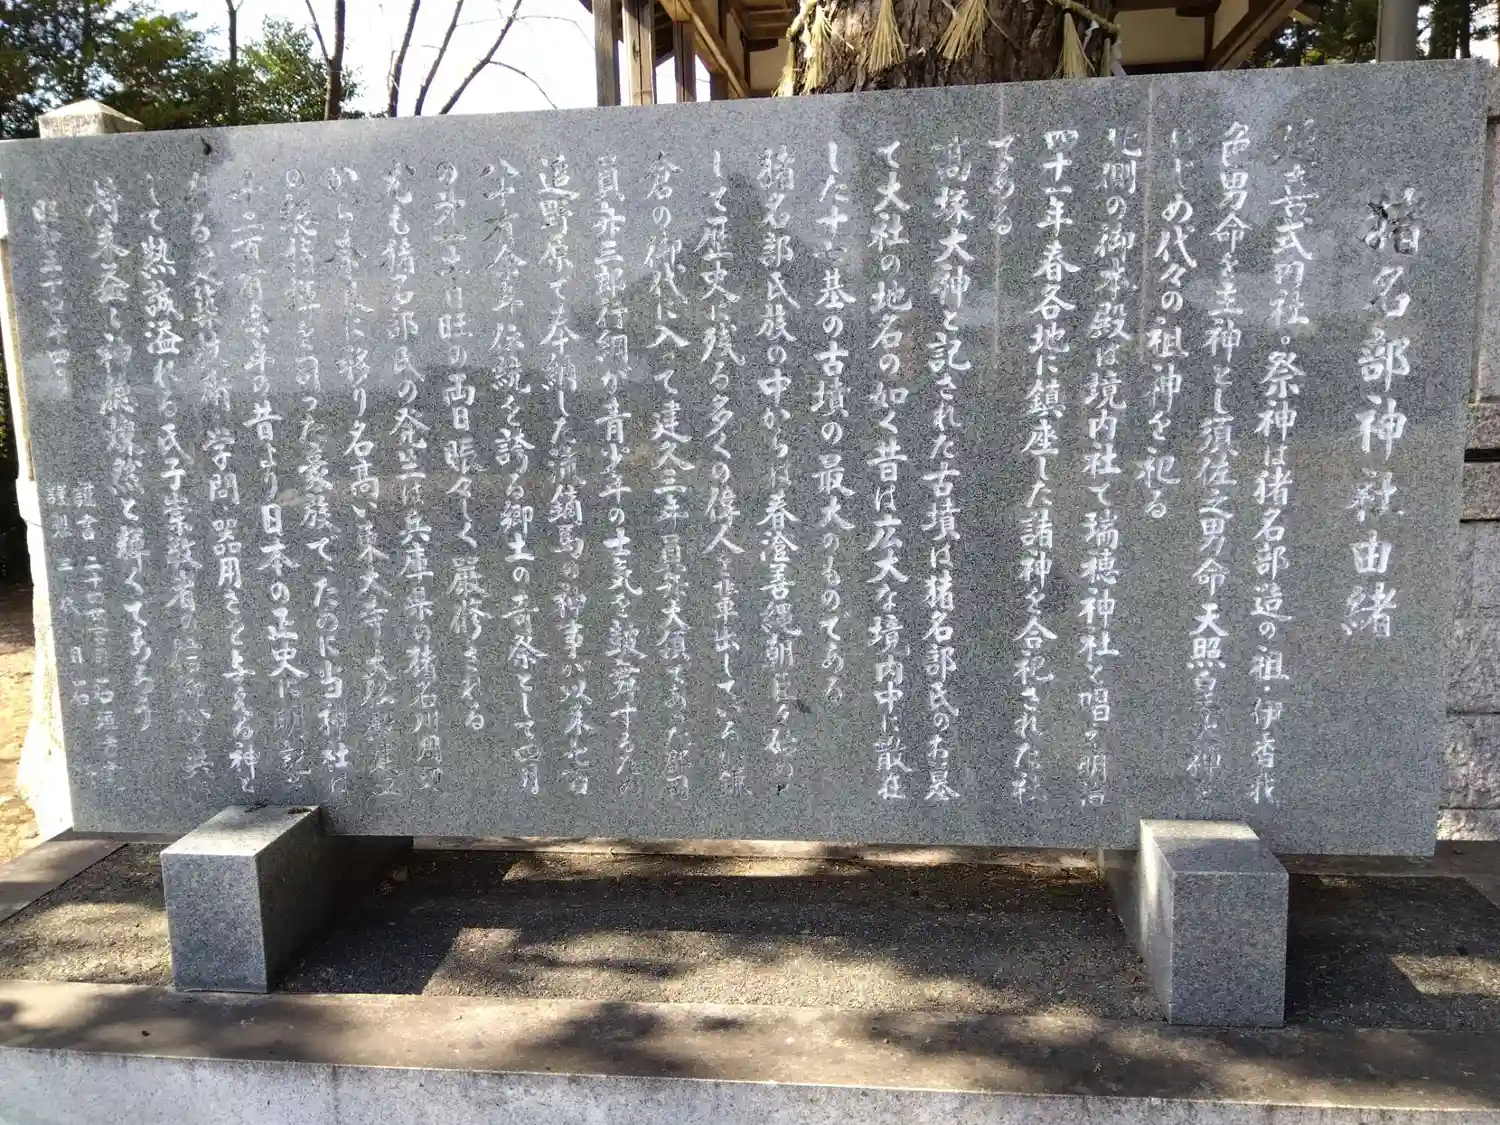 猪名部神社由緒
延喜式内社。祭神は猪名部造の祖・伊香我
色男命を主神とし須佐之男命天照皇大神を
はじめ代々の祖神を祀る
北側の御本殿は境内社で瑞穂神社と唱え明治
四十一年春各地に鎮座した諸神を合祀された社
である
高塚大神と記された古墳は猪名部氏のお墓
で大社の地名の如く昔は広大な境内中に散在
した十七基の古墳の最大のものである
猪名部氏族の中からは春澄善縄朝臣々始め
して歴史に残る多くの偉人を輩出している鎌
倉の御代に入って建久三年員弁大領であった郡司
員弁三郎行綱が青少年の士気を鼓舞するため
追野原で奉納した流鏑馬の神事が以来七百
八十有余年伝統を誇る郷土の奇祭として四月
の第 日旺の両日賑々しく厳修される
尤も猪名部氏の発生は兵庫県の猪名川周辺
から 移り名高い東大寺大仏殿建立
の 指揮を司った豪族でたのに当神社は
千二百有余年の昔より日本の正史に明記
学問 器用さを与える神と
して熱誠溢れる氏子崇敬者の
将来益々神徳燦然と輝くであろう
昭和五十 年四月
謹書
謹製